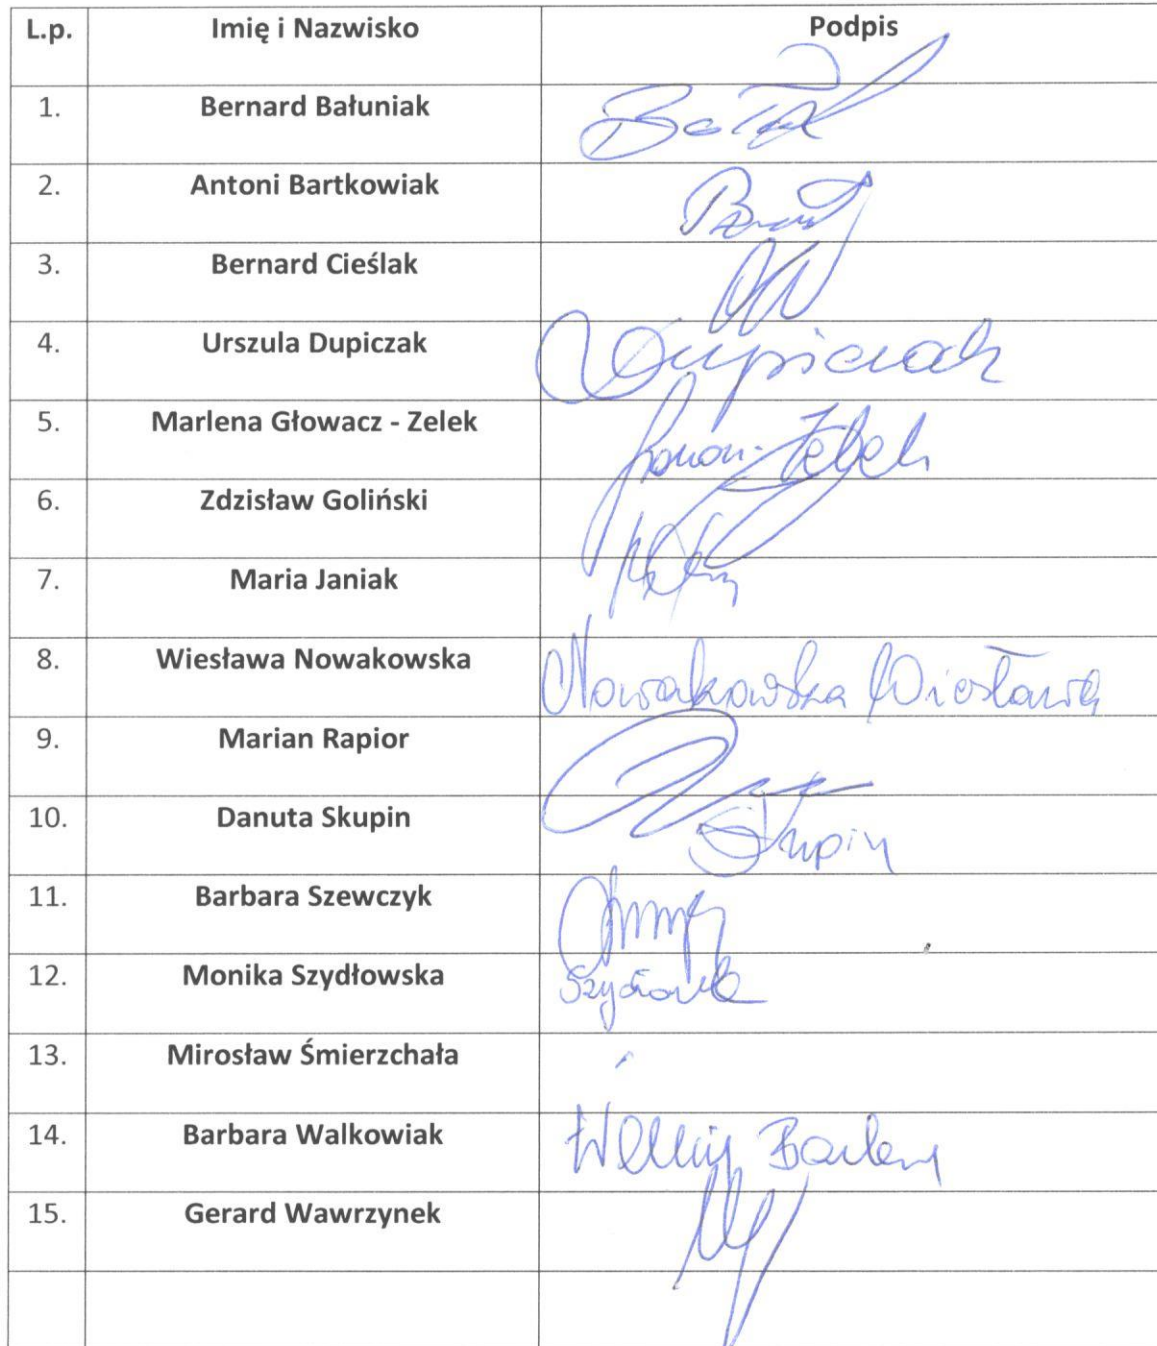 L.p. Imię i Nazwisko Podpis
1. Bernard Bałuniak
2. Antoni Bartkowiak
3. Bernard Cieślak
4. Urszula Dupiczak Dupiczak
5. Marlena Głowacz - Zelek Zelek
6. Zdzisław Goliński
7. Maria Janiak
8. Wiesława Nowakowska Nowakowska Wiesława
9. Marian Rapior
10. Danuta Skupin Skupin
11. Barbara Szewczyk
12. Monika Szydłowska
13. Mirosław Śmierzchała
14. Barbara Walkowiak
15. Gerard Wawrzynek